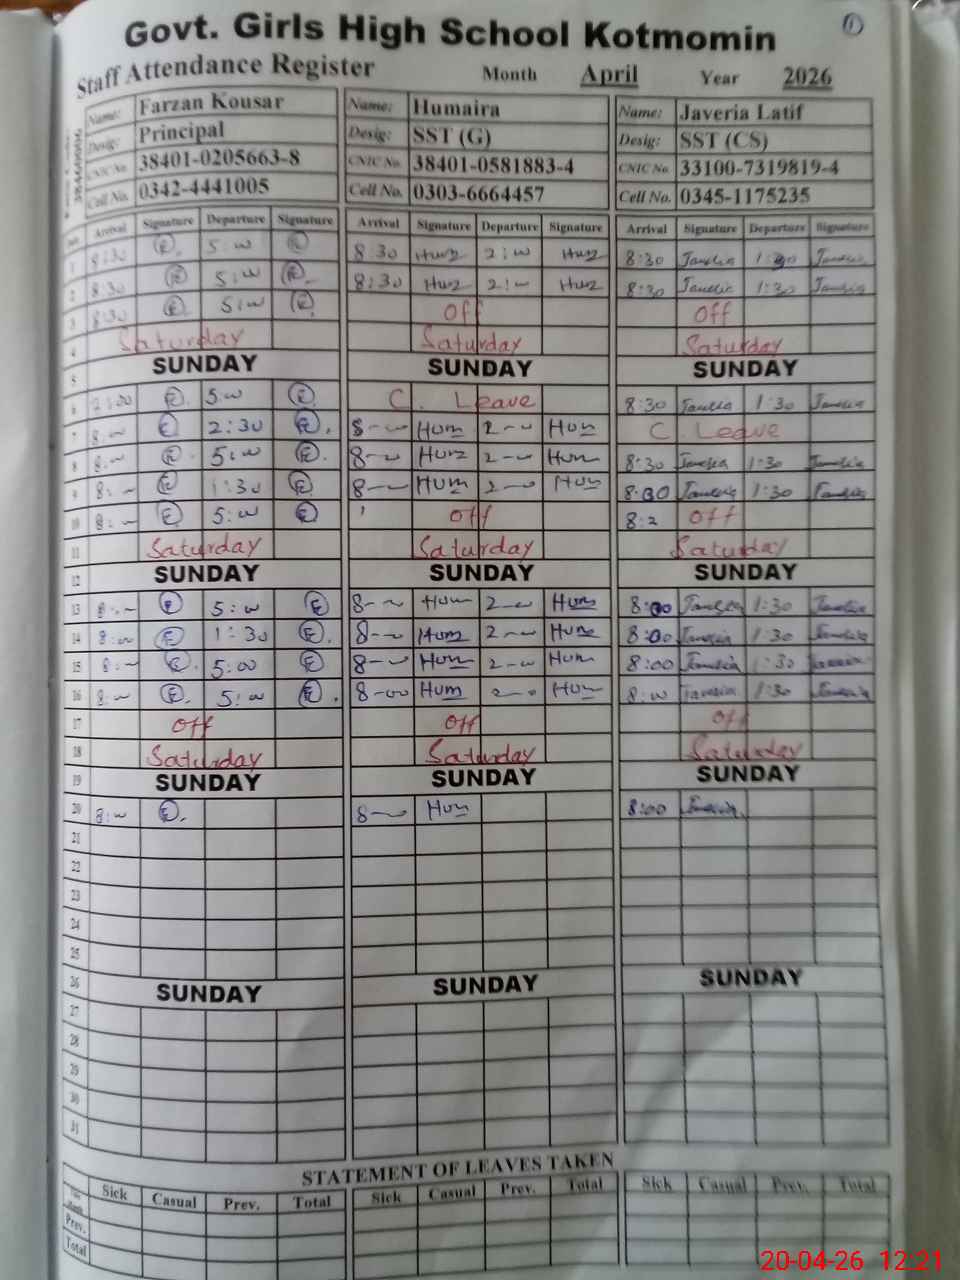 Govt. Girls High School Kotmomin
Staff Attendance Register Month April Year 2026
Name: Farzan Kousar Name: Humaira Name: Javeria Latif
Desig: Principal Desig: SST (G) Desig: SST (CS)
CNIC No. 38401-0205663-8 CNIC No. 38401-0581883-4 CNIC No. 33100-7319819-4
Cell No. 0342-4441005 Cell No. 0303-6664457 Cell No. 0345-1175235
Arrival Signature Departure Signature Arrival Signature Departure Signature Arrival Signature Departure Signature
1 8:30 5:00 8:30 2:00 8:30 1:30
2 8:30 5:00 8:30 2:00 8:30 1:30
3 8:30 5:00 Off Off
4 Saturday Saturday Saturday
5 SUNDAY SUNDAY SUNDAY
6 5:00 C. Leave 8:30 1:30
7 8:00 2:30 8-00 Hum 2-00 Hum C. Leave
8 8:00 5:00 8-00 Hum 2-00 Hum 8:30 1:30
9 8:00 1:30 8-00 Hum 2-00 Hum 8:00 1:30
10 8:00 5:00 Off Off
11 Saturday Saturday Saturday
12 SUNDAY SUNDAY SUNDAY
13 8:00 5:00 8-00 Hum 2-00 Hum 8:00 1:30
14 8:00 1:30 8-00 Hum 2-00 Hum 8:00 1:30
15 8:00 5:00 8-00 Hum 2-00 Hum 8:00 1:30
16 8:00 5:00 8-00 Hum 2-00 Hum 8:00 1:30
17 Off Off Off
18 Saturday Saturday Saturday
19 SUNDAY SUNDAY SUNDAY
20 8:00 8-00 Hum 8:00
21
22
23
24
25
26 SUNDAY SUNDAY SUNDAY
27
28
29
30
31
STATEMENT OF LEAVES TAKEN
Sick Casual Prev. Total Sick Casual Prev. Total Sick Casual Prev. Total
Prev.
Total
20-04-26 12:21